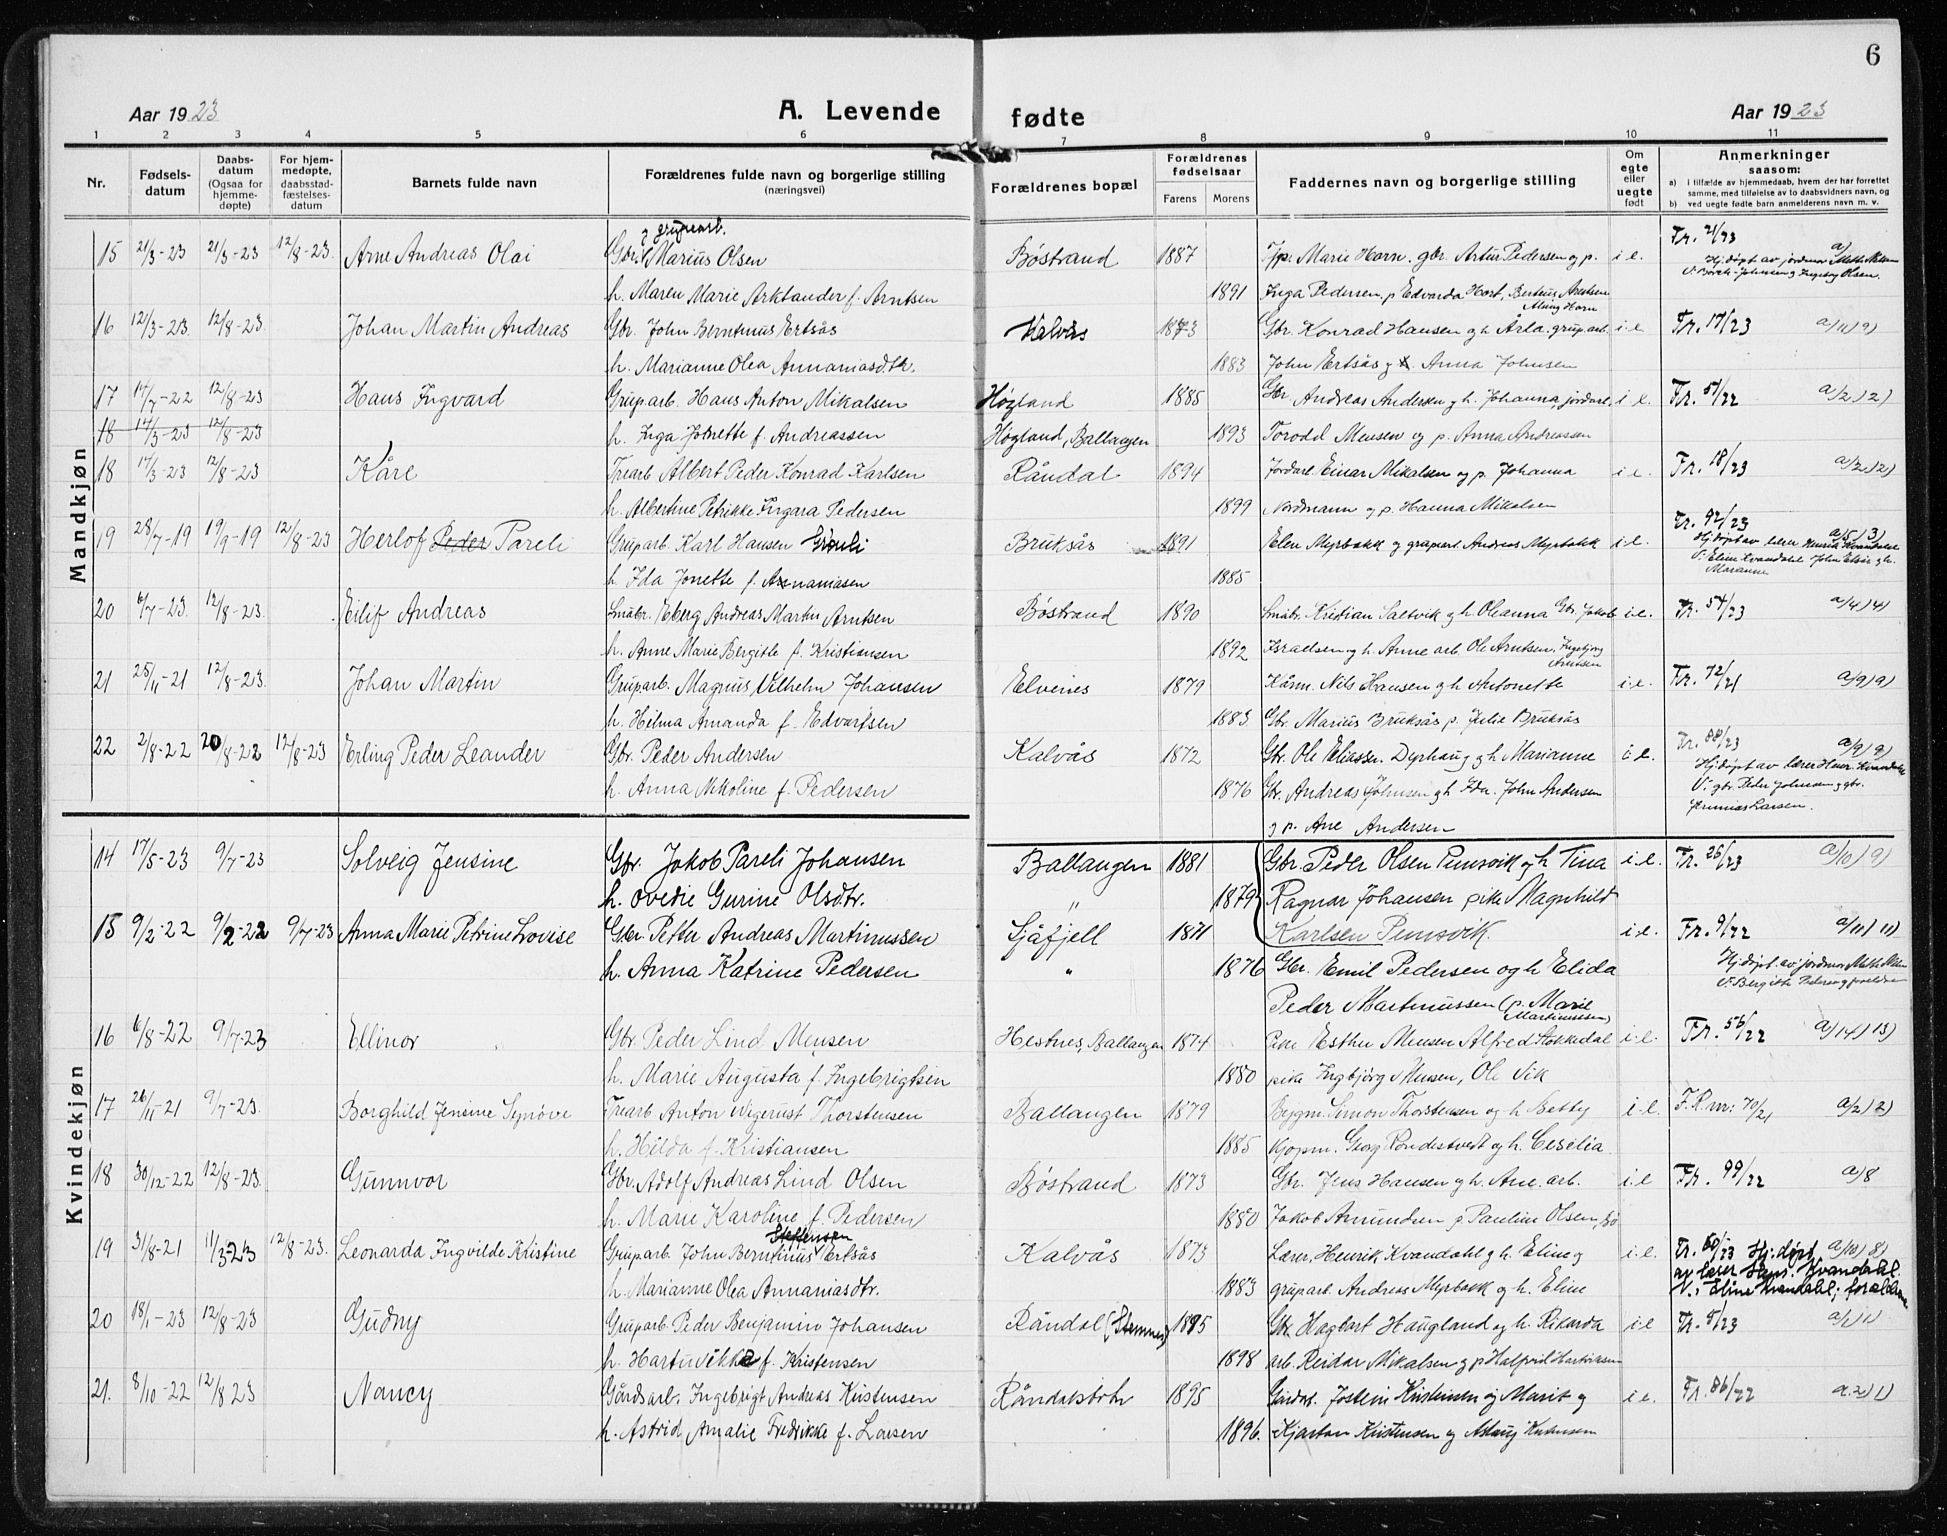 6
Aar 1923 A. Levende fødte Aar 1923
1 2 3 4 5 6 7 8 9 10 11
Nr. Fødsels-datum Daabs-datum (Ogsaa for hjemme-døpte) For hjem-medøpte, daabsstad-fæstelses-datum Barnets fulde navn Forældrenes fulde navn og borgerlige stilling (næringsvei) Forældrenes bopæl Forældrenes fødselsaar Farens Morens Faddernes navn og borgerlige stilling Om egte eller uegte født Anmerkninger saasom:
a) i tilfælde av hjemmedaab, hvem der har forrettet samme, med tilføielse av to daabsvidners navn, og
b) ved uegte fødte barn anmelderens navn m. v.
Mandkjøn
g gruparb.
15 21/3-23 21/3-23 12/8-23 Arne Andreas Olai Gbr. Marius Olsen Bøstrand 1887 Marie Horn. gbr. Artur Pedersen og p. i e. Fr. 21/23
h. Maren Marie Arktander f. Arntsen 1891 Inga Pedersen, p Edvarda Horst, Berteus Arntsen
16 12/3-23 12/8-23 Johan Martin Andreas Gbr. John Berntinus Ertsås Kalvås 1873 Gbr. Konrad Hansen og h. Arla. grup.arb. i e. Fr. 17/23 a/11) 9)
h. Marianne Olea Annaniasd.tr. 1883 John Ertsås og Anna Johnsen
17 17/7-22 12/8-23 Hans Ingvard Gruparb. Hans Anton Mikalsen Høgland 1885 Gbr. Andreas Andersen og h. Johanna, jordarb. i e. Fr. 51/22 a/2.) 2)
18 17/3-23 12/8-23 h. Inga Jonette f. Andreassen Høgland, Ballangen 1893 Torodd Mensen og p. Anna Andreassen
18 17/3-23 12/8-23 Kåre Trearb. Albert Peder Konrad Karlsen Råndal 1894 Jordarb. Einar Mikalsen og p. Johanna i e. Fr. 18/23 a/2) 2)
h. Albertine Petrikke Ingara Pedersen 1899 Nordmann og p. Hanna Mikalsen
19 28/7-19 19/9-19 12/8-23 Herlof Peder Pareli Gruparb. Karl Hansen Bruksås 1891 Elen Myrbakk og gruparb. Andreas Myrbakk i e. Fr. 92/23 a/5) 3)
h. Ida Jonette f. Annaniasen 1885
20 6/7-23 12/8-23. Eilif Andreas Småbr. Eberg Andreas Martin Arntsen Bøstrand 1890 Småbr. Kristian Saltvik og h. Oleanna Gbr. Jakob i e. Fr. 54/23 a/4) 4)
h. Anne Marie Bergitte f. Kristiansen 1892 Israelsen og h. Anne arb. Ole Arntsen, Ingebjørg Arntsen
21 25/11-21 12/8-23. Johan Martin Gruparb. Magnus Vilhelm Johansen Elvenes 1879 Nils Hansen og h. Antonette i e. Fr. 72/21 a/9) 9)
h. Hilma Amanda f. Edvartsen 1883 Gbr. Marius Bruksås p. Julie Bruksås
22 2/8-22 20/8-22 12/8-23 Erling Peder Leander Gbr. Peder Andersen Kalvås 1872 Gbr. Ole Eliassen. Djuphaug og h Marianne i e. Fr. 88/23 a/9) 9)
h. Anna Nikoline f. Pedersen 1876 Gbr. Andreas Johnsen og h John Andersen
og p. Ane Andersen
Kvindekjøn
14 17/5-23 9/7-23 Solveig Jensine Gbr. Jakob Pareli Johansen Ballangen 1881 Gbr. Peder Olsen Pumsvik og h Tina i e. Fr. 26/23 a/10) 9)
h. Ovedie Gurine Olsdtr. " 1879 Ragnar Johansen pike Magnhild
15 9/2-22 9/2-22 9/7-23 Anna Marie Petrine Lovise Gbr. Petter Andreas Martinussen Sjåfjell 1871 Karlsen Pumsvik. i e. Fr. 9/22 a/11) 11)
h. Anna Katrine Pedersen " 1876 Gbr. Emil Pedersen og h Elida
Peder Martinussen (p. Marie Martinussen)
16 6/8-22 9/7-23 Ellinor Gbr. Peder Lind Mensen Hestnes, Ballangen 1874 Pike Esther Mensen Alfred Stokkedal i e. Fr. 56/22 a/14) 13)
h. Marie Augusta f. Ingebrigtsen 1880 pike Ingbjørg Mensen, Ole Vik
17 26/11-21 9/7-23. Borghild Jensine Synøve Trearb. Anton Wigerust Thorstensen Ballangen 1879 Bygm. Simon Thorstensen og h. Betty i e. F.R. nr: 70/21 a/2) 2)
h. Hilda f. Kristiansen 1885 Kjøpm. Georg Rondestvedt og h. Ceselia
18 30/12-22 12/8-23. Gunnvor Gbr. Adolf Andreas Lind Olsen Bøstrand 1873 Gbr. Jens Hansen og h. Ane. arb. i e Fr. 99/22 a/8
h. Marie Karoline f. Pedersen 1880 Jakob Amundsen p. Pauline Olsen, Bø
Steffensen
19 31/8-21 11/3-23 12/8-23. Leonarda Ingvilde Kristine Gruparb. John Berntinus Ertsås Kalvås 1873 Lærer. Henrik Kvandahl og h. Eline og i e. Fr. 60/23 Hj. døpt a/10) 8)
av lærer Henr. Kvandahl.
h. Marianne Olea Annaniasdtr. 1883 gruparb. Andreas Myrbakk og h. Eline V.: Eline Kvandahl; forældrene
20 18/1-23 12/8-23 Gudny Gruparb. Peder Benjamin Johansen Råndal (Stemnes) 1885 Gbr. Hagbart Haugland og h. Rikarda i e Fr. 5/23 a/1) 1)
h. Hartuvikke f. Kristensen 1898 arb. Reidar Mikalsen og p Halfrid Hartviksen
21. 8/10-22 12/8 23 Nancy Gårdsarb. Ingebrigt Andreas Kristensen Råndalsbotn 1895 Gårdbr. Jostein Kristensen og Marit og i e. Fr. 86/22 a.2) 1)
h. Astrid Amalie Fredrikke f. Larsen 1896. Kjartan Kristensen og Aslaug Kristensen